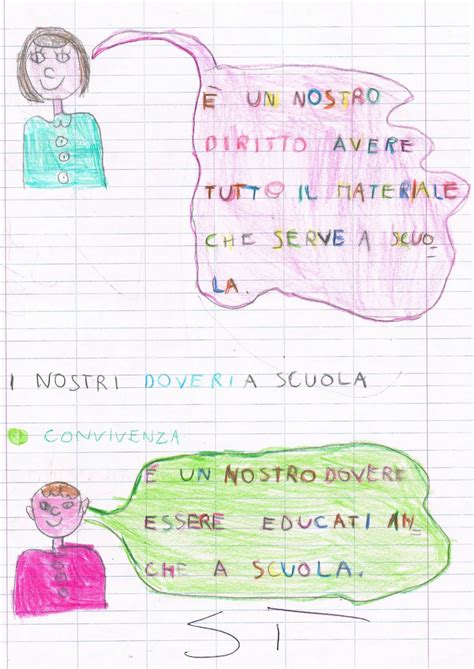 È UN NOSTRO
DIRITTO AVERE
TUTTO IL MATERIALE
CHE SERVE A SCUO
LA.
I NOSTRI DOVERI A SCUOLA
CONVIVENZA
È UN NOSTRO DOVERE
ESSERE EDUCATI AN
CHE A SCUOLA.
SI